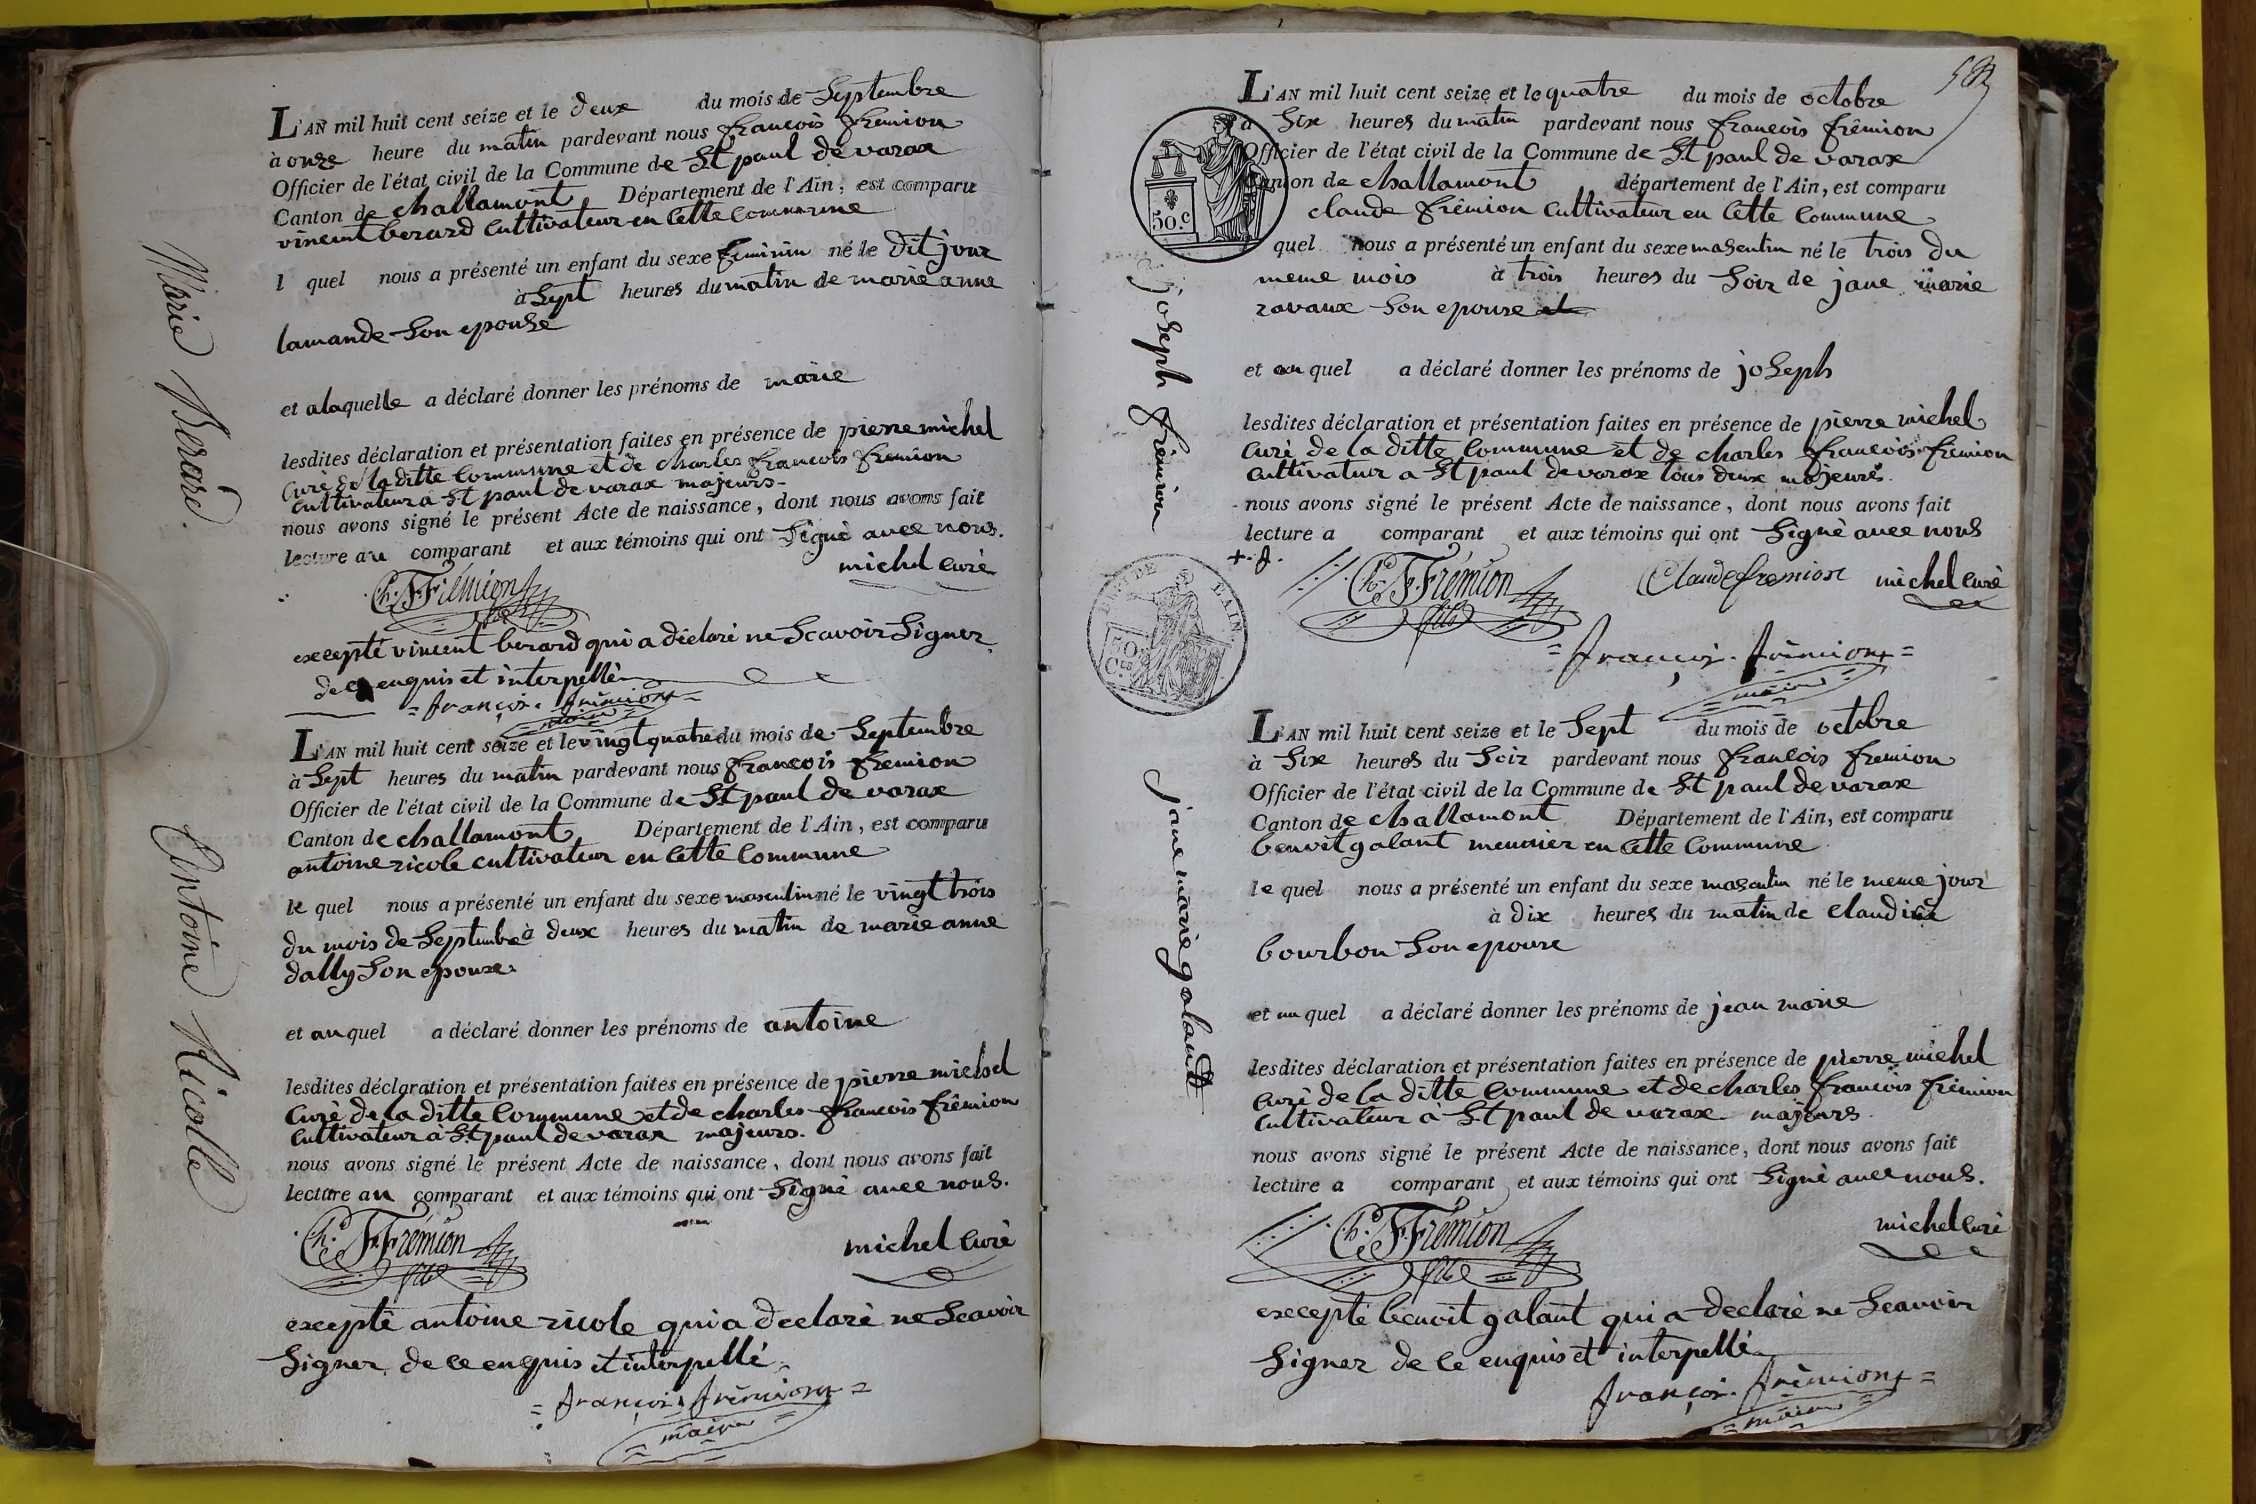 L'AN mil huit cent seize et le deux du mois de Septembre
à onze heure du matin pardevant nous françois frémion
Officier de l'état civil de la Commune de St paul de varax
Canton de challamont Département de l'Ain, est comparu
vincent berard cultivateur en cette commune
l quel nous a présenté un enfant du sexe feminin né le dit jour
à Sept heures du matin de marie anne
lamande Son epouse
et alaquelle a déclaré donner les prénoms de marie
lesdites déclaration et présentation faites en présence de pierre michel
curé de la ditte commune et de charles françois fremion
cultivateur a St paul de varax majeurs
nous avons signé le présent Acte de naissance, dont nous avons fait
lecture au comparant et aux témoins qui ont Signé avec nous.
michel curé
Ch. F. Frémion
fils
excepté vincent berard qui a déclaré ne Scavoir Signer
de ce enquis et interpellé
= françois. frémion =
maire
Marie Berard.
L'AN mil huit cent seize et le vingt quatre du mois de Septembre
à Sept heures du matin pardevant nous françois fremion
Officier de l'état civil de la Commune de St paul de varax
Canton de challamont Département de l'Ain, est comparu
antoine ricole cultivateur en cette commune
le quel nous a présenté un enfant du sexe masculin né le vingt trois
du mois de Septembre à deux heures du matin de marie anne
dally Son epouse.
et au quel a déclaré donner les prénoms de antoine
lesdites déclaration et présentation faites en présence de pierre michel
curé de la ditte commune et de charles françois frémion
cultivateur à St paul de varax majeurs.
nous avons signé le présent Acte de naissance, dont nous avons fait
lecture au comparant et aux témoins qui ont Signé avec nous.
Ch. F. Frémion
fils
michel curé
excepté antoine ricole qui a declaré ne Scavoir
Signer de ce enquis et interpellé
= françois frémion =
maire
Antoine Ricolle
L'AN mil huit cent seize et le quatre du mois de octobre
a Six heures du matin pardevant nous françois frémion
Officier de l'état civil de la Commune de St paul de varax
Canton de challamont département de l'Ain, est comparu
claude frémion cultivateur en cette commune
quel nous a présenté un enfant du sexe masculin né le trois du
meme mois à trois heures du Soir de jane marie
ravaux Son epouse
et au quel a déclaré donner les prénoms de joSeph
lesdites déclaration et présentation faites en présence de pierre michel
curé de la ditte commune et de charles françois fremion
cultivateur a St paul de varax tous deux majeurs.
nous avons signé le présent Acte de naissance, dont nous avons fait
lecture a comparant et aux témoins qui ont Signé avec nous
Ch. F. Frémion
fils
Claude fremion
michel curé
= françois. frémion =
maire
50.c
joSeph frémion
DEP. DE L'AIN.
50
Ces
L'AN mil huit cent seize et le Sept du mois de octobre
à Six heures du Soir pardevant nous françois fremion
Officier de l'état civil de la Commune de St paul de varax
Canton de challamont Département de l'Ain, est comparu
benoit galant meunier en cette commune
le quel nous a présenté un enfant du sexe masculin né le meme jour
à dix heures du matin de claudine
bourbon Son epouse
et au quel a déclaré donner les prénoms de jean marie
lesdites déclaration et présentation faites en présence de pierre michel
curé de la ditte commune et de charles françois frémion
cultivateur à St paul de varax majeurs
nous avons signé le présent Acte de naissance, dont nous avons fait
lecture a comparant et aux témoins qui ont Signé avec nous.
Ch. F. Frémion
fils
michel curé
excepté benoit galant qui a declaré ne Scavoir
Signer de ce enquis et interpellé
françois. frémion =
= maire =
jane marie galant